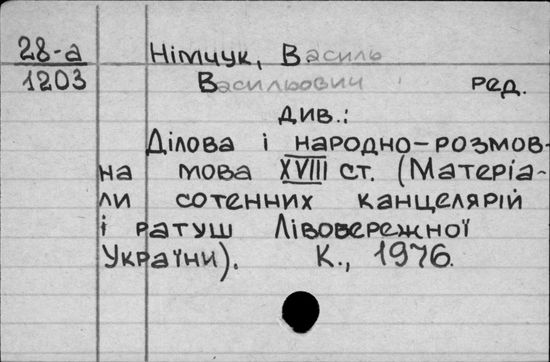 28-а Німчук, Василь
1203 Васильович ред.
див.:
Ділова і народно-розмов-
на мова XVIII ст. (Матеріа-
ли сотенних канцелярій
і ратуш Лівобережної
України). К., 1976.